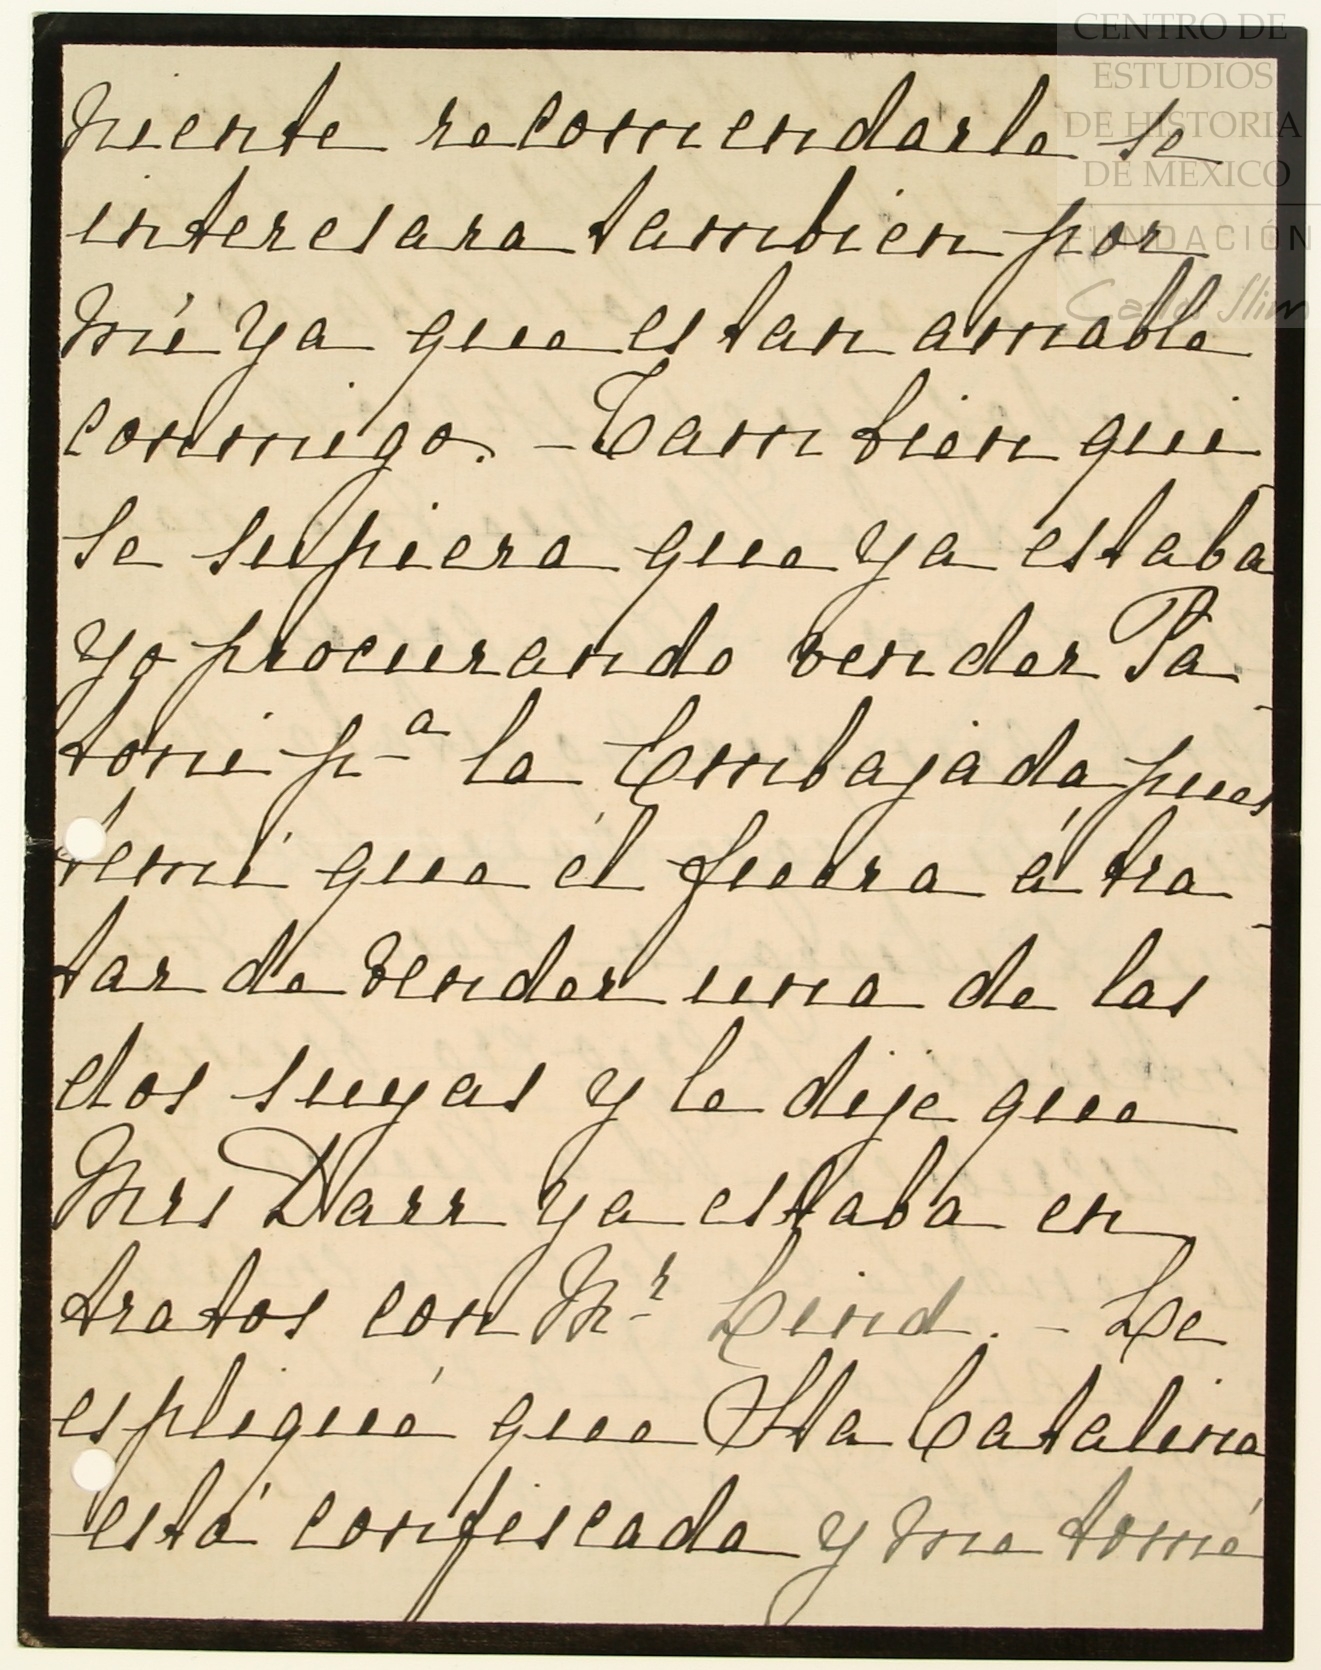 CENTRO DE
ESTUDIOS
DE HISTORIA
DE MEXICO
FUNDACIÓN
Carlos Slim
niente recomendarle se
interesara tambien por
mí ya que es tan amable
conmigo. - Tambien qui
se supiera que ya estaba
yo procurando vender Pa-
toni p.ª la Embajada pues
temí que él fuera á tra-
tar de vender una de las
dos suyas y le dije que
Mrs Darr ya estaba en
tratos con Mr Lind. - Le
espliqué que Sta Catalina
está confiscada y me tomé